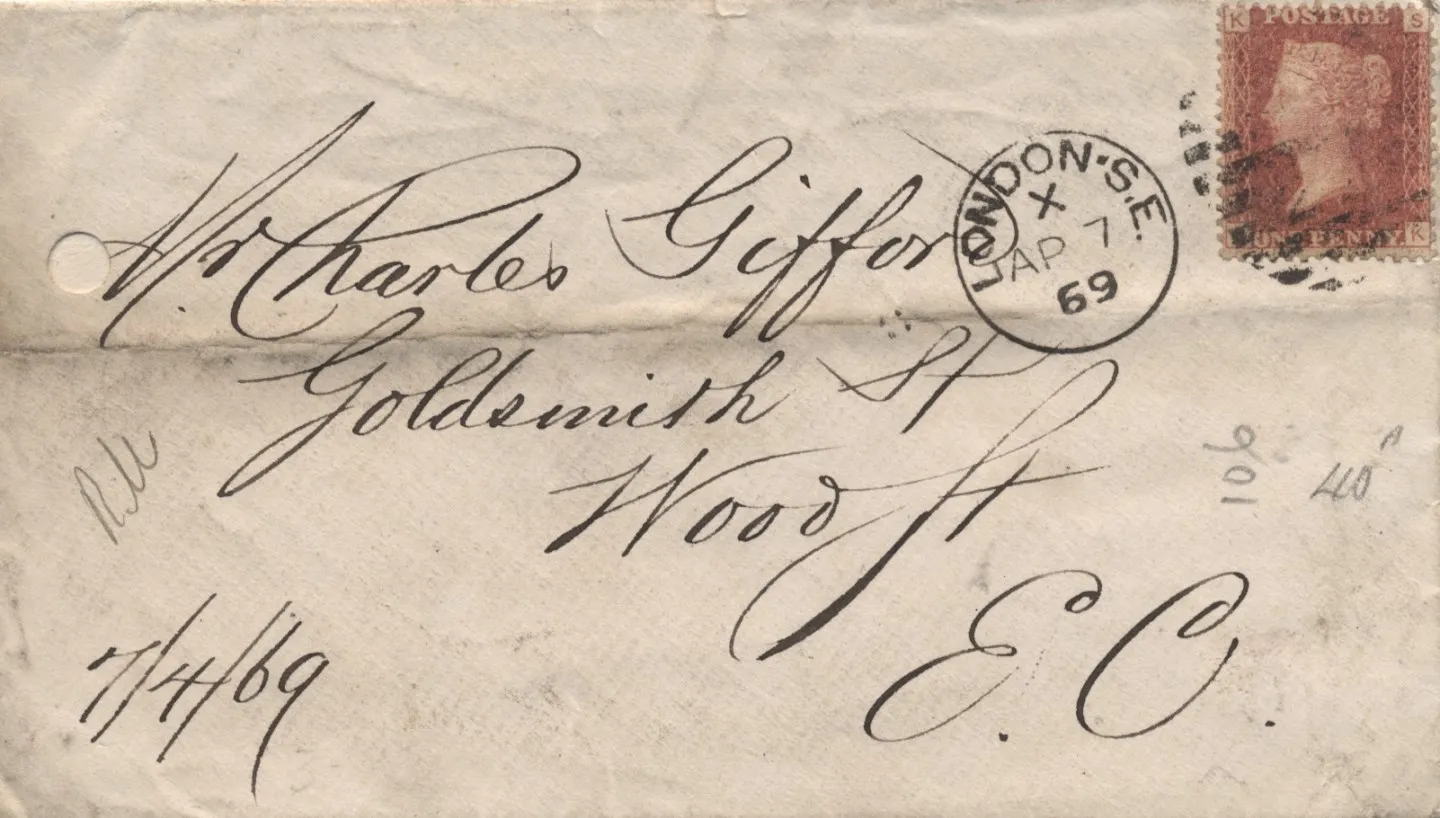 K POSTAGE S
ONE PENNY K
LONDON·S.E.
X
AP 7
69
Mr Charles Gifford
Goldsmith St
Wood St
E.C.
7/4/69